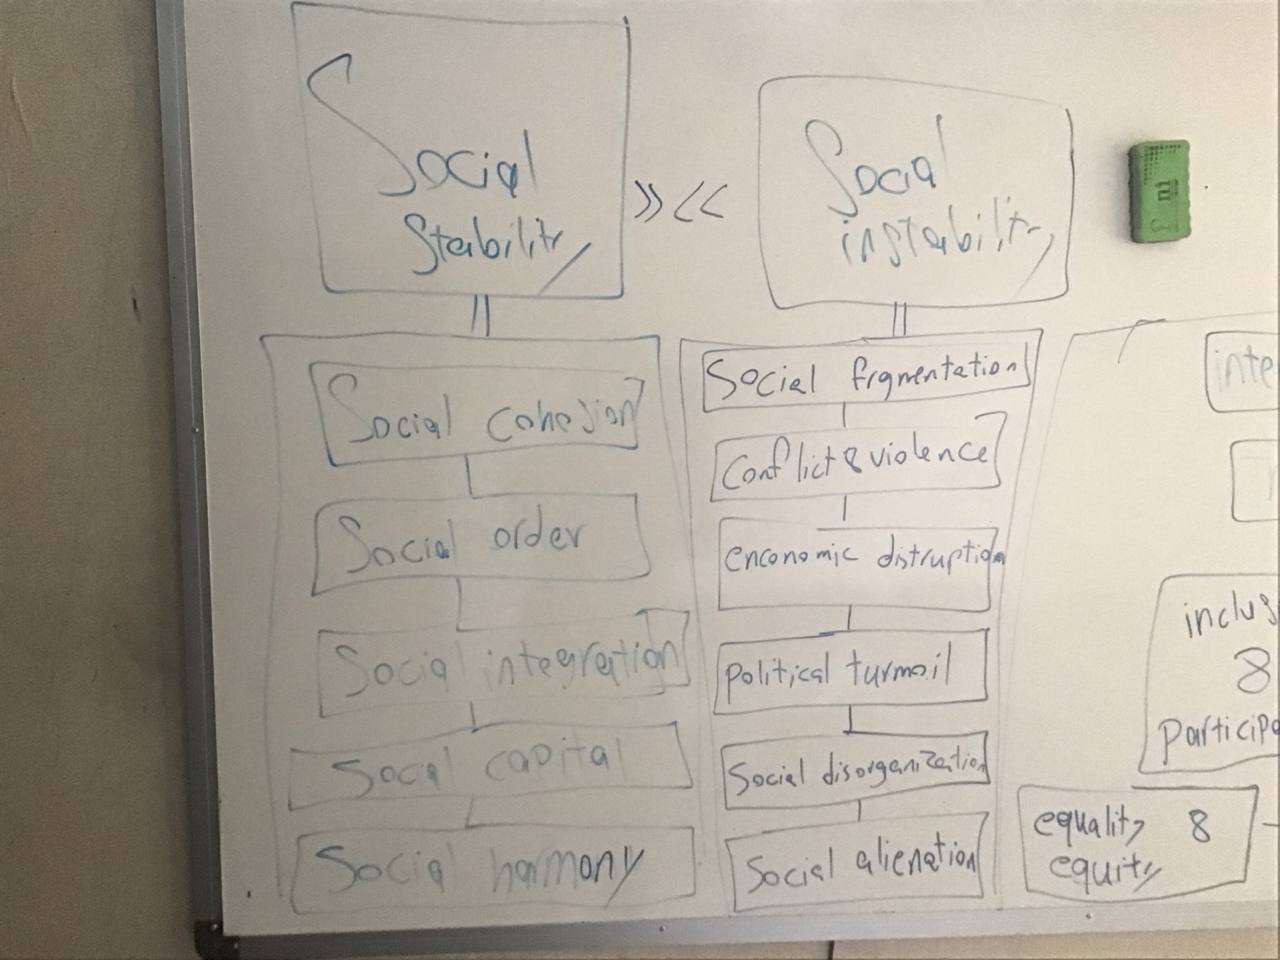 Social
Stability
>> <<
Social
instability
Social cohesion
Social order
Social integration
Social capital
Social harmony
Social frgmentation
Conflict & violence
enconomic distruption
political turmoil
Social disorganization
Social alienation
inte
inclus
&
participa
equality &
equity